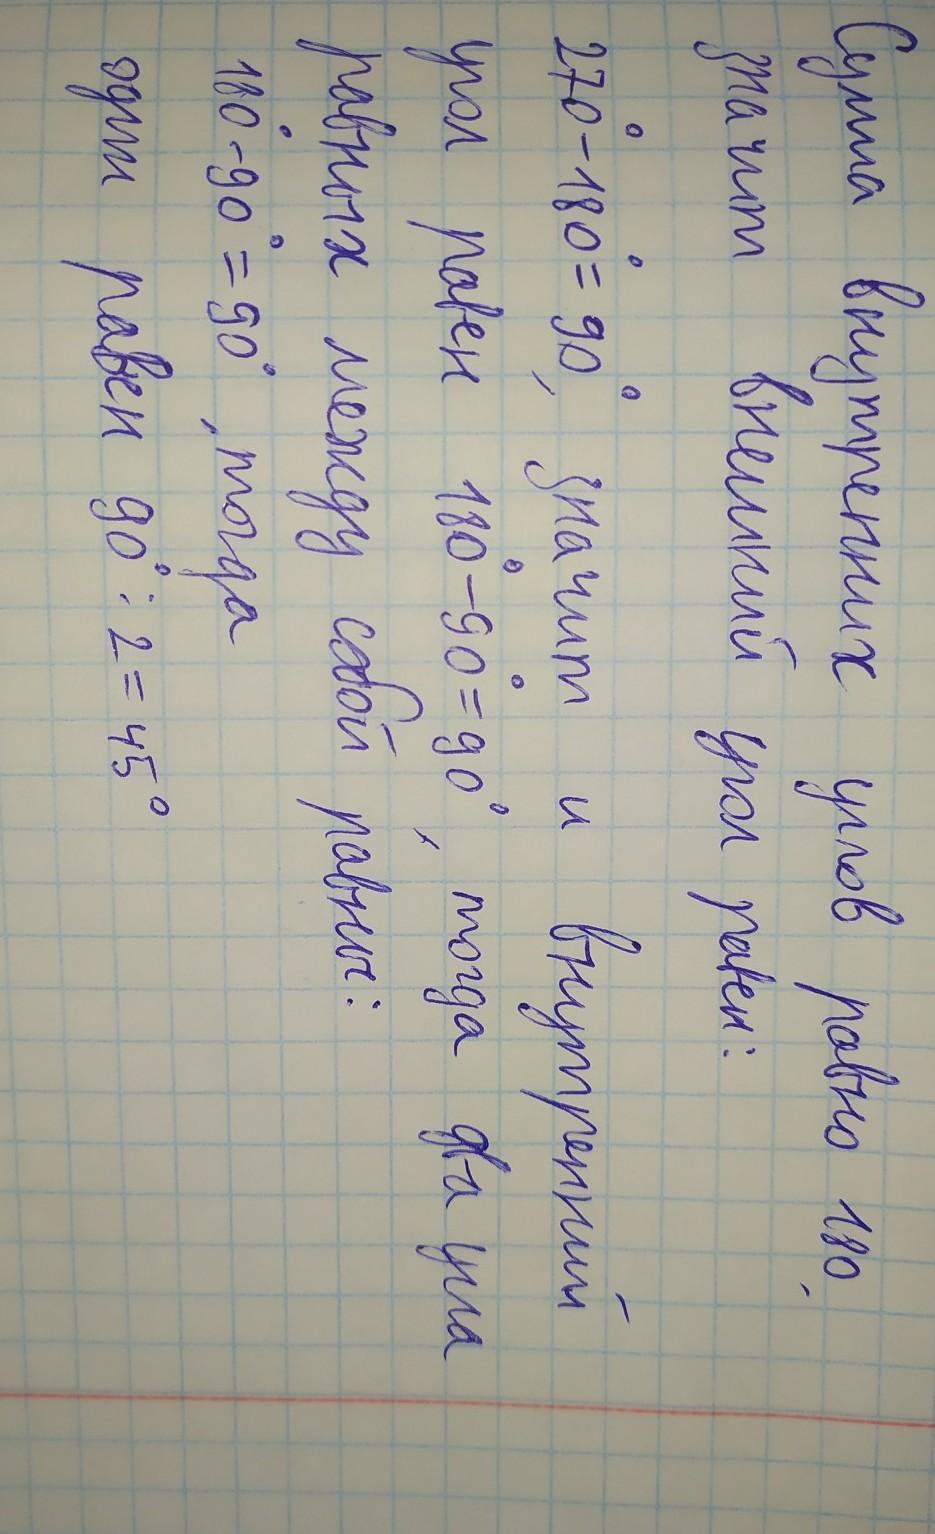 Сумма внутренних углов равно 180,
значит внешний угол равен:
270°-180°=90°, значит и внутренний
угол равен 180°-90°=90°, тогда два угла
равных между собой равны:
180°-90°=90°, тогда
один равен 90°:2=45°